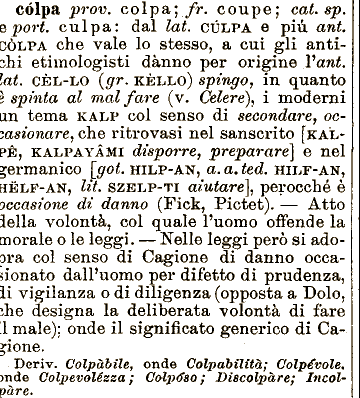 cólpa prov. colpa; fr. coupe; cat. sp.
e port. culpa: dal lat. CÚLPA e più ant.
CÒLPA che vale lo stesso, a cui gli anti-
chi etimologisti dànno per origine l'ant.
lat. CÈL-LO (gr. KÈLLO) spingo, in quanto
è spinta al mal fare (v. Celere), i moderni
un tema KALP col senso di secondare, oc-
casionare, che ritrovasi nel sanscrito [KAL-
PÊ, KALPAYÂMI disporre, preparare] e nel
germanico [got. HILP-AN, a. a. ted. HILF-AN,
HËLF-AN, lit. SZELP-TI aiutare], perocché è
occasione di danno (Fick, Pictet). — Atto
della volontà, col quale l'uomo offende la
morale o le leggi. — Nelle leggi però si ado-
pra col senso di Cagione di danno occa-
sionato dall'uomo per difetto di prudenza,
di vigilanza o di diligenza (opposta a Dolo,
che designa la deliberata volontà di fare
il male); onde il significato generico di Ca-
gione.
Deriv. Colpàbile, onde Colpabilità; Colpévole.
onde Colpevolézza; Colpóso; Discolpàre; Incol-
pàre.